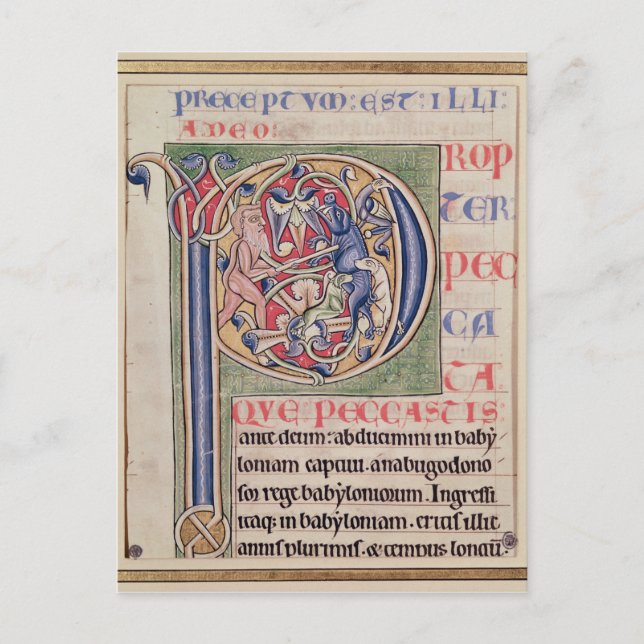 PRECEPTVM : EST : ILLI :
A DEO :
PROP
TER
PEC
CA
TA
QVE PECCASTIS
ante deum : abducimini in baby
loniam captiui . a nabugodono
sor rege babyloniorum . Ingressi
itaq; in babyloniam . eritis illic
annis plurimis . & tempus longū .